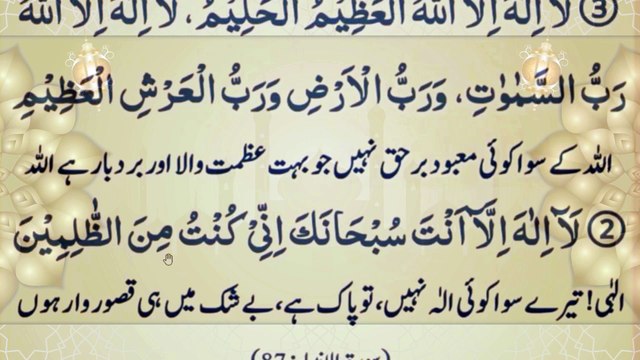 ③ لَا اِلٰهَ اِلَّا اللّٰهُ الْعَظِيْمُ الْحَلِيْمُ، لَا اِلٰهَ اِلَّا اللّٰهُ
رَبُّ السَّمٰوٰتِ، وَرَبُّ الْاَرْضِ وَرَبُّ الْعَرْشِ الْعَظِيْمِ
اللہ کے سوا کوئی معبود برحق نہیں جو بہت عظمت والا اور بردبار ہے اللہ
② لَآ اِلٰهَ اِلَّآ اَنْتَ سُبْحَانَكَ اِنِّيْ كُنْتُ مِنَ الظّٰلِمِيْنَ
الٰہی! تیرے سوا کوئی الٰہ نہیں، تو پاک ہے، بے شک میں ہی قصور وار ہوں